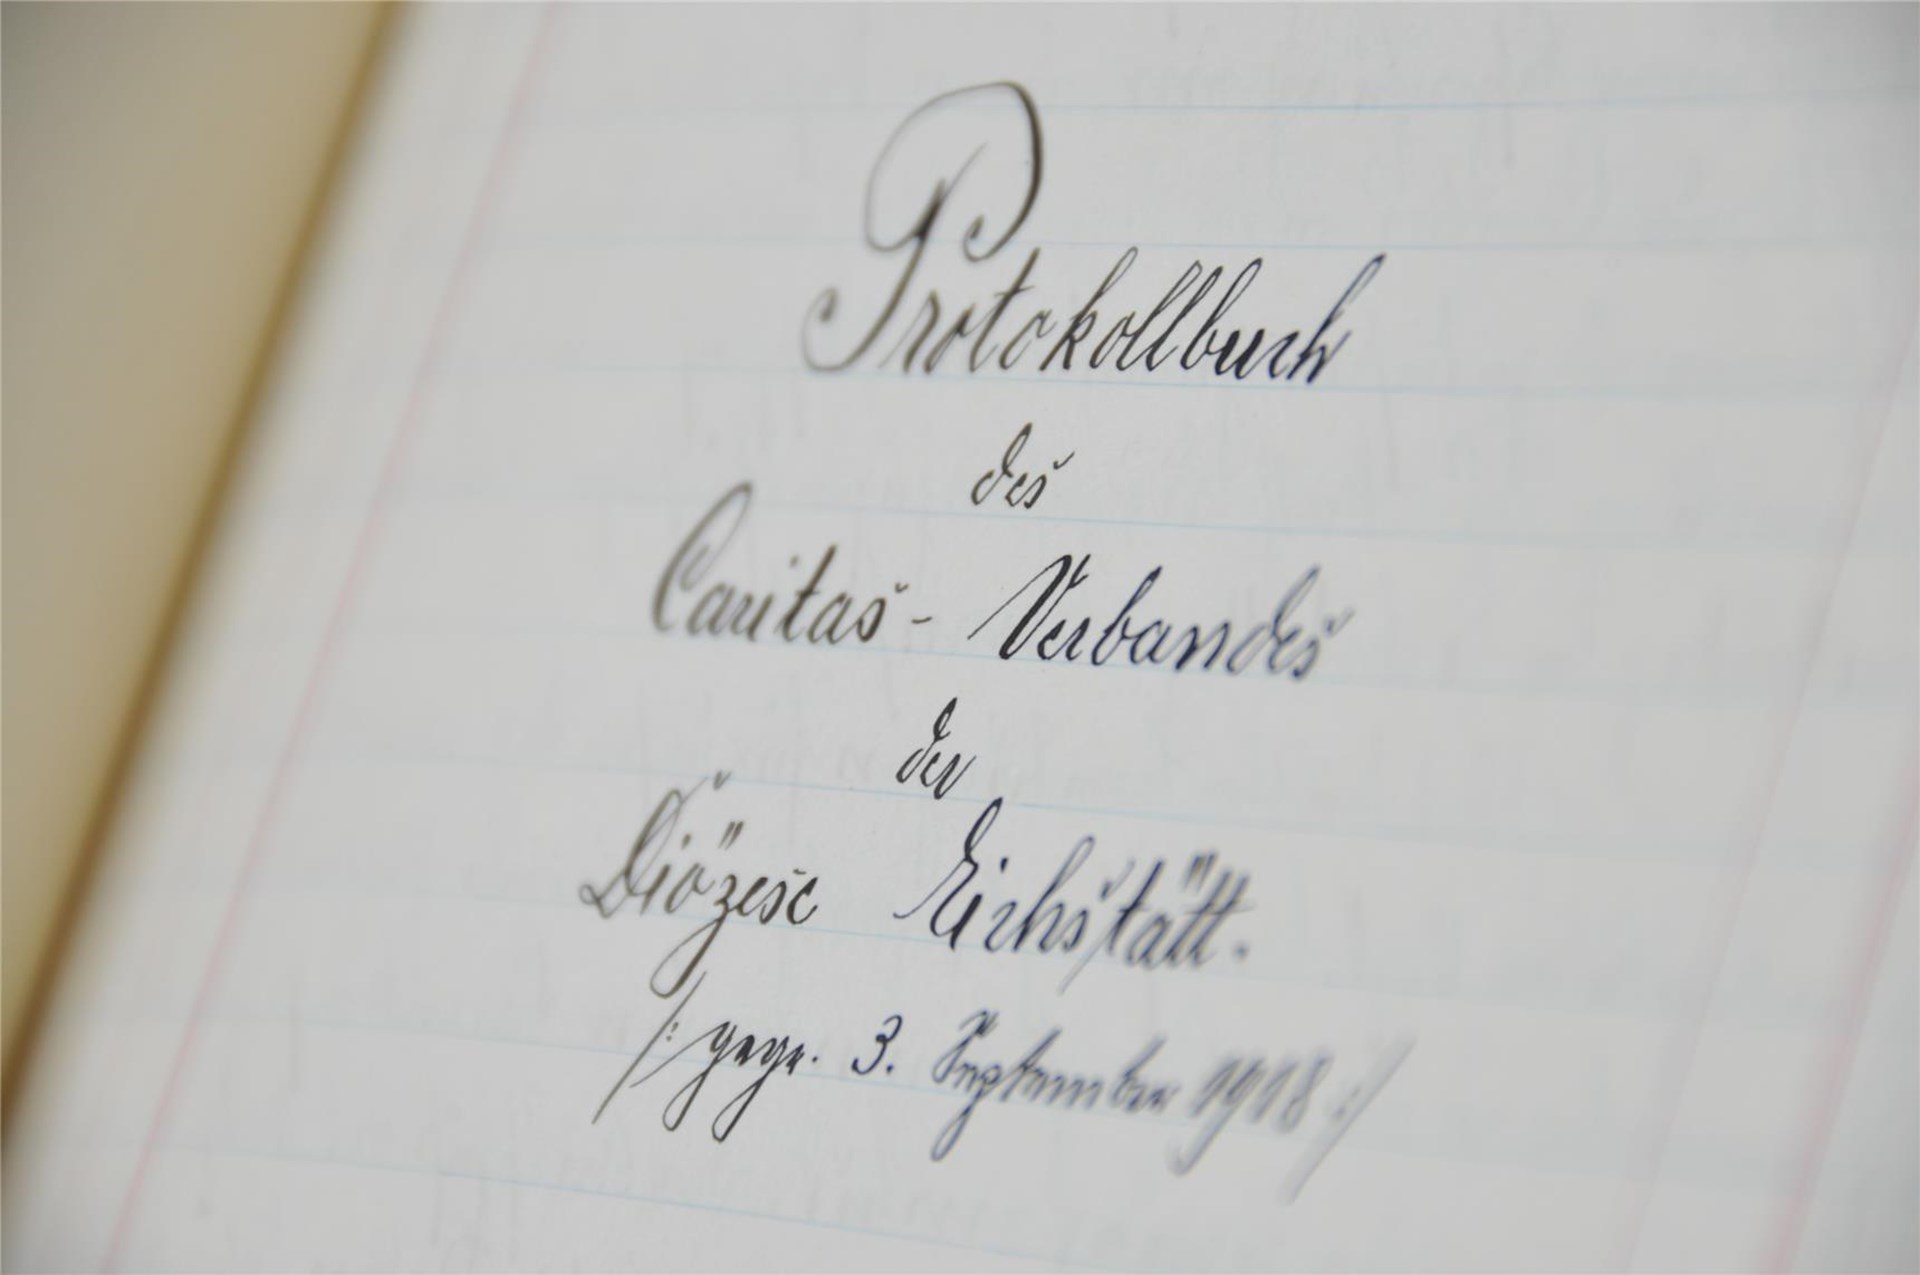 Protokollbuch
des
Caritas - Verbandes
der
Diözese Eichstätt.
/: gegr. 3. September 1918 :/